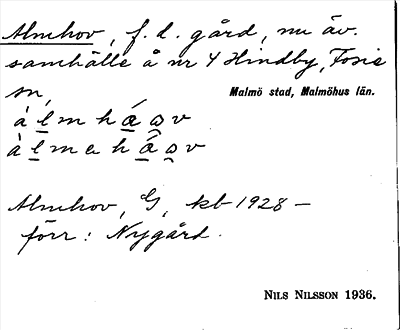 Almhov, f. d. gård, nu äv.
samhälle å nr 4 Hindby, Fosie
sn,
Malmö stad, Malmöhus län.
à l m h ǽ ω v
à l m e h ǽ ω v
Almhov, G, kb 1928 –
förr: Nygård.
NILS NILSSON 1936.